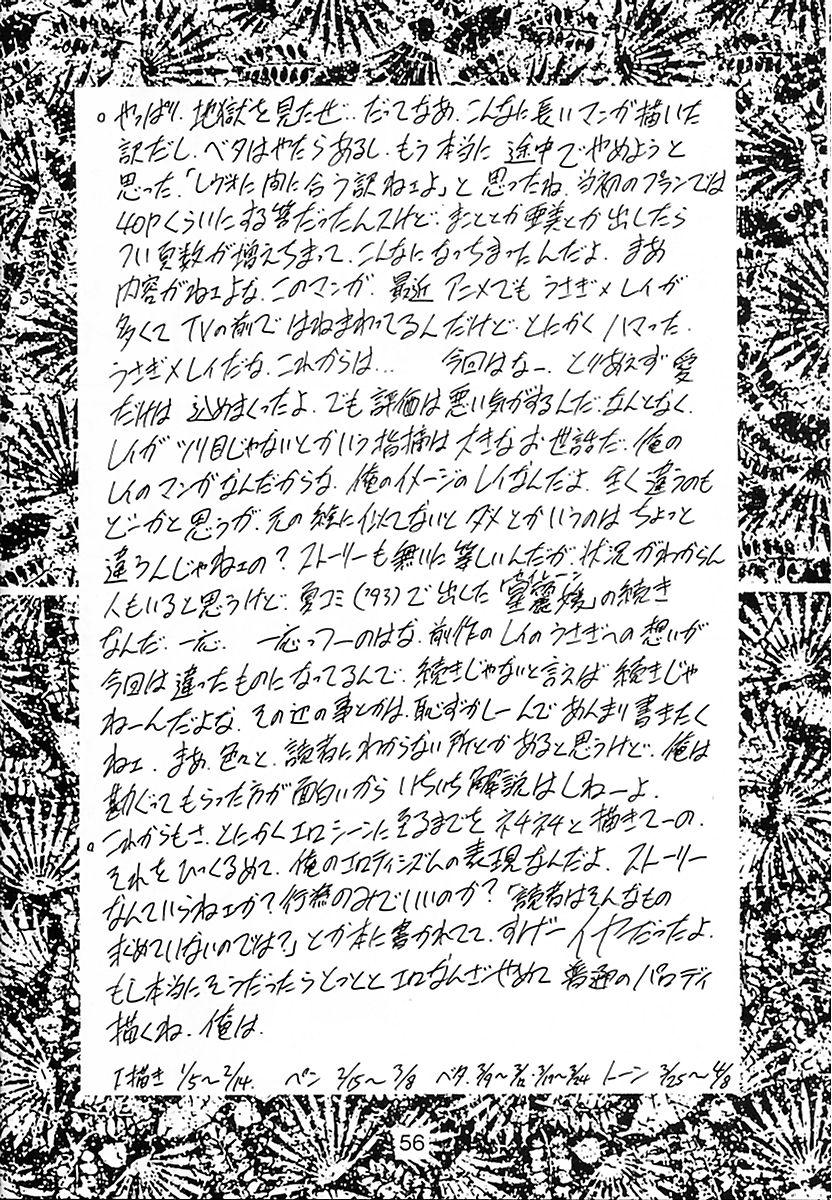 。やっぱり、地獄を見たぜ‥だってなあ、こんなに長いマンガ描いた
訳だし、ベタはやたらあるし、もう本当に途中でやめようと
思った。「レヴォに間に合う訳ねェよ」と思ったね。当初のプランでは
40Pくらいにする筈だったんスけど、まことか亜美とか出したら
つい頁数が増えちまって、こんなになっちまったんだよ。まあ
内容がねェよな、このマンガ。最近アニメでもうさぎ×レイが
多くてTVの前ではねまわってるんだけど、とにかくハマった。
うさぎ×レイだな、これからは… 今回はなー、とりあえず愛
だけは込めまくったよ。でも評価は悪い気がするんだ、なんとなく。
レイがツリ目じゃないとかいう指摘は大きなお世話だ。俺の
レイのマンガなんだからな。俺のイメージのレイなんだよ。全く違うのも
どーかと思うが、元の絵に似てないとダメとかいうのはちょっと
違うんじゃねェの?ストーリーも無いに等しいんだが、状況がわからん
人もいると思うけど、夏コミ('93)で出した「麗媛」の続き
なんだ、一応。 一応っつーのはな、前作のレイのうさぎへの想いが
今回は違ったものになってるんで、続きじゃないと言えば続きじゃ
ねーんだよな。その辺の事とかは、恥ずかしーんであんまり書きたく
ねェ。まあ、色々と、読者にわからない所とかあると思うけど、俺は
勘ぐってもらった方が面白いからいちいち解説はしねーよ。
。これからもさ、とにかくエロシーンに至るまでをネチネチと描きてーの。
それをひっくるめて、俺のエロティシズムの表現なんだよ。ストーリー
なんていらねェか?行為のみでいいのか?「読者はそんなもの
求めていないのでは?」とか本に書かれてて、すげーイヤだったよ。
もし本当にそうだったらとっととエロなんざやめて普通のパロディ
描くね、俺は。
下描き 1/5〜2/14. ペン 2/15〜3/8 ベタ. 3/9〜3/12・3/17〜3/24 トーン 3/25〜4/8
56